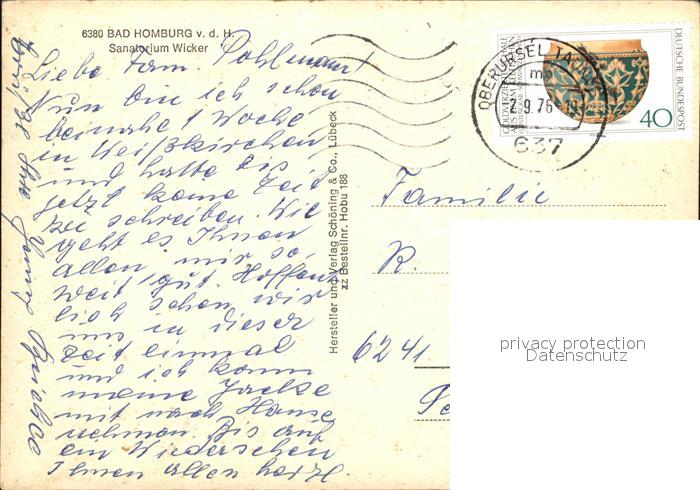 6380 BAD HOMBURG v. d. H.
Sanatorium Wicker
Liebe Fam. Pohlmann!
Nun bin ich schon
beinahe 1 Woche
in Weißkirchen
und hatte bis
jetzt keine Zeit
zu schreiben. Wie
geht es Ihnen
allen, mir so
weit gut. Hoffent
lich sehen wir
uns in dieser
Zeit einmal
und ich kann
meine Jacke
mit nach Hause
nehmen. Bis auf
ein Wiedersehen
Ihnen allen herzl.
Ihre
Hersteller und Verlag Schöning & Co., Lübeck
zz Bestellnr. Hobu 188
DEUTSCHE BUNDESPOST
40
OBERURSEL TAUNUS
2.9.76
637
Familie
R.
6241
privacy protection
Datenschutz